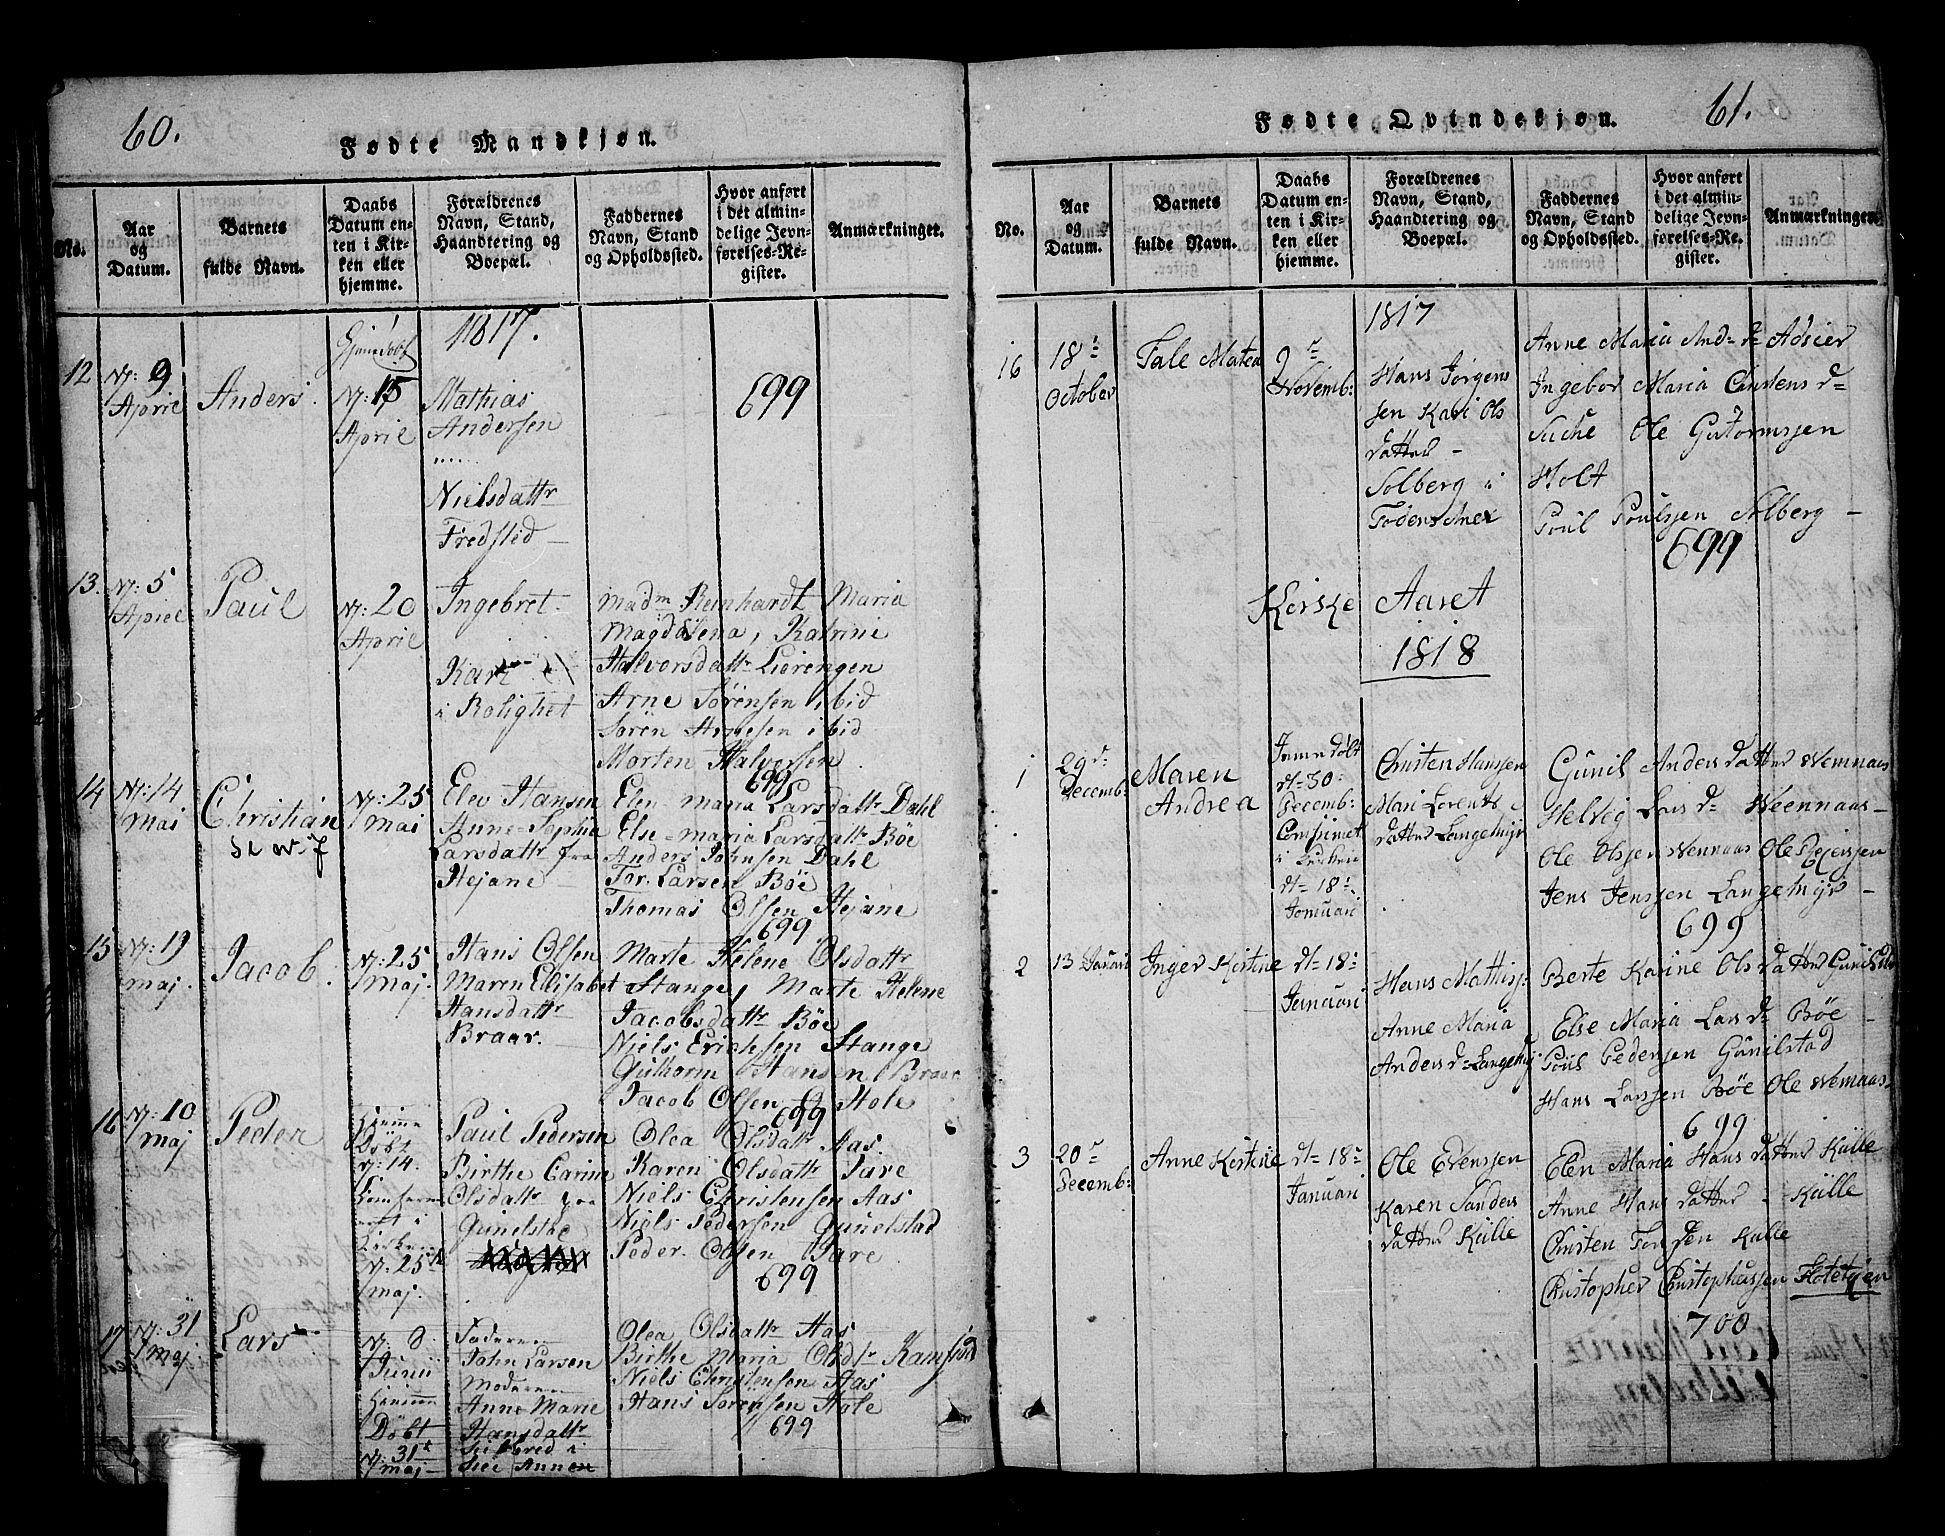 60.
Fødte Mandkjøn.
No.
Aar og Datum.
Barnets fulde Navn.
Daabs Datum enten i Kirken eller hjemme.
Forældrenes Navn, Stand, Haandtering og Boepæl.
Faddernes Navn, Stand og Opholdssted.
Hvor anført i det almindelige Jevnførelses-Register.
Anmærkninger.
1817.
12
9 April
Anders
15 April
Mathias
Andersen
Nielsdattr
Fredsted
699
13.
5 Apriel
Paul
20 April
Ingebret
Kari
i Rolighet
Madm Reinhardt Maria
Magdalena, Katrine
Halvorsdattr Lierengen
Arne Sørensen ibid
Søren Arnesen ibid
Morten Halversen
699
14
14 mai
Christian
25 mai
Elev Hansen
Anne-Sophia
Larsdattr fra
Hejane
Elen maria Larsdattr Dahl
Else-maria Larsdattr Bøe
Anders Johnsen Dahl
Tor. Larsen Bøe
Thomas Olsen Hejane
699
15
19 maj.
Jacob
25 maj.
Hans Olsen
Maren Elisabet
Hansdattr
Braar.
Marte Helene Olsdattr
Stange, Marte Helene
Jacobsdattr Bøe
Niels Erichsen Stange
Guthorm Hansen Braar
Jacob Olsen Hole
699
16
10 maj
Peder
Hiemme
Døbt
14.
i
Kirken
25
maj.
Paul Pedersen
Birthe Carine
Olsdattr fra
Gunelstae
Olea Olsdattr Aas.
Karen Olsdattr Tare
Niels Christensen Aas
Niels Pedersen Gunelstad
Peder Olsen Tare
699
17
31 maj
Lars
8 Junii
Hiemme
Døbt
31 maj
Faderen
John Larsen
Moderen
Anne Marie
Hansdattr
Olea Olsdattr Aas
Birthe Maria Olsdtr
Niels Christensen Aas
Hans Sørensen Hole
699
61.
Fødte Qvindekjøn.
No.
Aar og Datum.
Barnets fulde Navn.
Daabs Datum enten i Kirken eller hjemme.
Forældrenes Navn, Stand, Haandtering og Boepæl.
Faddernes Navn, Stand og Opholdssted.
Hvor anført i det almindelige Jevnførelses-Register.
Anmærkninger.
1817
16
18 October
Tale Matea
9 Novemb:
Hans Jørgens
sen Kari Ols
datter
Solberg i
Anne Maria And- d= Adsier
Ingebor Maria Carstens d=
Suche Ole Gutormsen
Holt
Poul Poulsen Solberg
699
Kirske Aaret
1818
1
29 Decemb:
Maren
Andrea
dt= 30:
Decemb:
i
dt= 18:
Januari
Christen Hansen
Mari Lorents
datter Langemyr
Gunil Anders datter Wennaas
Helvig Lars d= Weennaas
Ole Olsen Wennaas Ole
Jens Jenssen Langemyr
699
2
13 Januari
Inger Kirstine
dt= 18:
Januari
Hans Mathisj:
Anne Maria
Anders d= Langemyr
Berte Karine Ols datter
Else Maria Lars d= Bøe
Poul Pedersen Gunilstad
Hans Larsen Bøe Ole Wennaas
699
3
20 Decemb:
Anne Kirstine
dt= 18:
Januari
Ole Evensen
Karen Sanders
datter Kulle
Elen Maria Hans datter Kulle
Anne Hans datter Kulle
Christen Kulle
Christopher Christophersen
700